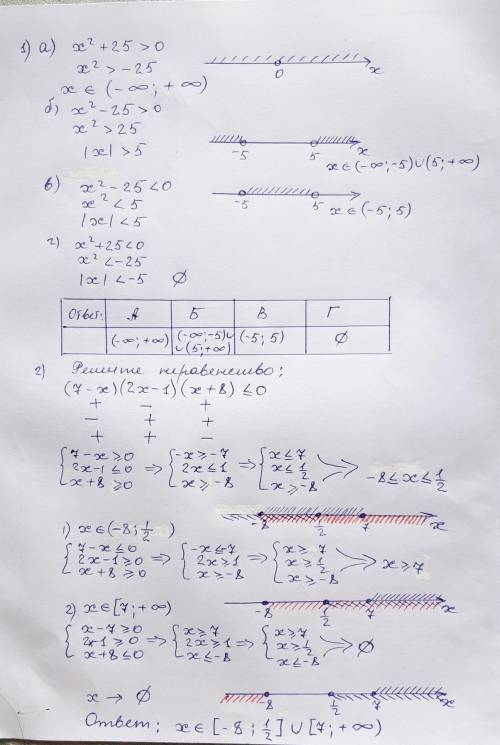 1) а) x² + 25 > 0
x² > -25
x ∈ (-∞; +∞)
0 x
б) x² - 25 > 0
x² > 25
|x| > 5
-5 5 x
x ∈ (-∞; -5) ∪ (5; +∞)
в) x² - 25 < 0
x² < 5
|x| < 5
-5 5 x ∈ (-5; 5)
г) x² + 25 < 0
x² < -25
|x| < -5 ∅
Ответ: А Б В Г
(-∞; +∞) (-∞; -5) ∪ ∪ (5; +∞) (-5; 5) ∅
2) Решите неравенство;
(7-x)(2x-1)(x+8) ≤ 0
+ - +
- + +
+ + -
{7-x ≥ 0 ⇒ {-x ≥ -7 ⇒ {x ≤ 7
{2x-1 ≤ 0 {2x ≤ 1 {x ≤ 1/2 -8 ≤ x ≤ 1/2
{x+8 ≥ 0 {x ≥ -8 {x ≥ -8
-8 1/2 7 x
1) x ∈ (-8; 1/2 )
{7-x ≤ 0 {-x ≤ -7 {x ≥ 7
{2x-1 ≥ 0 ⇒ {2x ≥ 1 ⇒ {x ≥ 1/2 x ≥ 7
{x+8 ≥ 0 {x ≥ -8 {x ≥ -8
2) x ∈ [7; +∞)
-8 1/2 7 x
{x-7 ≥ 0 {x ≥ 7 {x ≥ 7
{2x-1 ≥ 0 ⇒ {2x ≥ 1 ⇒ {x ≥ 1/2 ∅
{x+8 ≤ 0 {x ≤ -8 {x ≤ -8
x → ∅
-8 1/2 7 x
Ответ; x ∈ [-8; 1/2] ∪ [7; +∞)